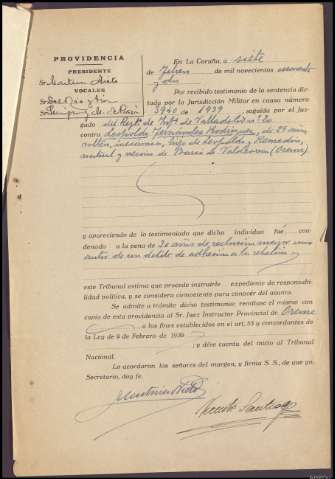 PROVIDENCIA
PRESIDENTE
VOCALES
En La Coruña, a siete
de Febrero de mil novecientos cuarenta
y dos
Por recibido testimonio de la sentencia dic-
tada por la Jurisdicción Militar en causa número
3940 de 1939 seguida por el Juz-
gado del Regto. de Infª de Valladolid
contra Leopoldo Fernández Rodríguez, de 29 años
soltero, hijo de Leopoldo y
natural y vecino de Barco de Valdeorras (Orense)
y apareciendo de lo testimoniado que dicho individuo fué con-
denado a la pena de 30 años de reclusión mayor como
autor de un delito de adhesión a la rebelión
este Tribunal estima que procede instruirle expediente de responsabi-
lidad política, y se considera competente para conocer del asunto.
Se admite a trámite dicho testimonio; remítase el mismo con
copia de esta providencia al Sr. Juez Instructor Provincial de Orense
a los fines establecidos en el art. 53 y concordantes de
la Ley de 9 de Febrero de 1939
y déje cuenta del inicio al Tribunal
Nacional.
Lo acordaron los señores del margen, y firma S. S., de que yo,
Secretario, doy fe.
Vicente Santiago